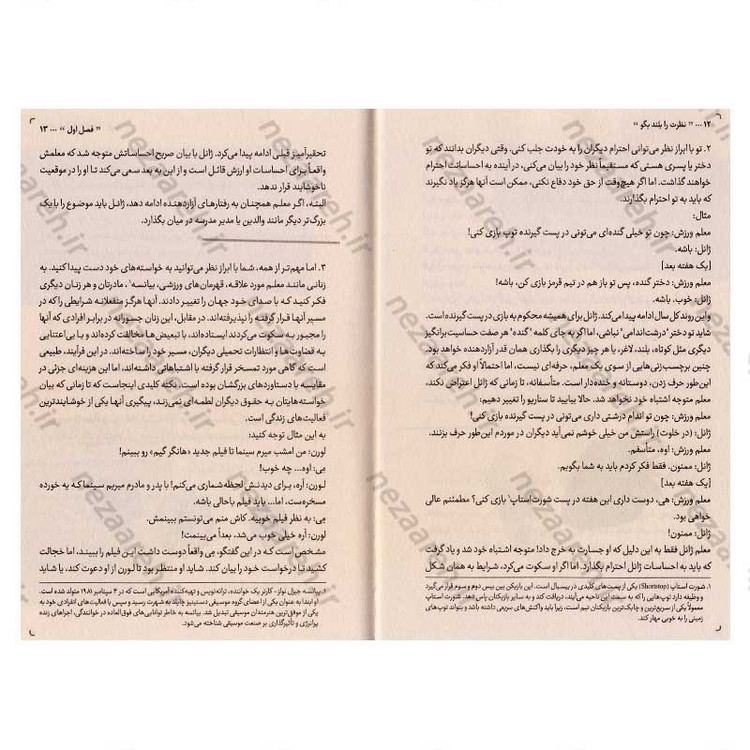 ۱۲ ... " نظرت را بلند بگو "
۲. تو با ابراز نظر می‌توانی احترام دیگران را به خودت جلب کنی. وقتی دیگران بدانند که تو
دختر یا پسری هستی که مستقیماً نظر خود را بیان می‌کنی، در آینده به احساساتت احترام
خواهند گذاشت. اما اگر هیچ‌وقت از حق خود دفاع نکنی، ممکن است آنها هرگز یاد نگیرند
که باید به تو احترام بگذارند.
مثال:
معلم ورزش: چون تو خیلی گنده‌ای می‌تونی در پست گیرنده توپ بازی کنی!
ژانل: باشه.
[یک هفته بعد]
معلم ورزش: دختر گنده، پس تو باز هم در تیم قرمز بازی کن، باشه!
ژانل: خوب، باشه.
و این روند کل سال ادامه پیدا می‌کند. ژانل برای همیشه محکوم به بازی در پست گیرنده است.
شاید تو دختر "درشت‌اندامی" نباشی، اما اگر به جای کلمه "گنده" هر صفت حساسیت‌برانگیز
دیگری مثل کوتاه، بلند، لاغر، یا هر چیز دیگری را بگذاری همان قدر آزاردهنده خواهد بود.
چنین برچسب‌زنی‌هایی از سوی یک معلم، حرفه‌ای نیست، اما احتمالاً او فکر می‌کند که
این‌طور حرف زدن، دوستانه و خنده‌دار است. متأسفانه، تا زمانی که ژانل اعتراض نکند،
معلم متوجه اشتباه خود نخواهد شد. حالا بیایید تا سناریو را تغییر دهیم:
معلم ورزش: چون تو اندام درشتی داری می‌تونی در پست گیرنده بازی کنی!
ژانل: (در خلوت) راستش من خیلی خوشم نمی‌آید دیگران در موردم این‌طور حرف بزنند.
معلم ورزش: اوه، متأسفم.
ژانل: ممنون. فقط فکر کردم باید به شما بگویم.
[یک هفته بعد]
معلم ورزش: هی، دوست داری این هفته در پست شورت‌استاپ¹ بازی کنی؟ مطمئنم عالی
خواهی بود.
ژانل: ممنون!
معلم ژانل فقط به این دلیل که او جسارت به خرج داد! متوجه اشتباه خود شد و یاد گرفت
که باید به احساسات ژانل احترام بگذارد. اما اگر او سکوت می‌کرد، شرایط به همان شکل
۱. شورت استاپ (Shortstop) یکی از پست‌های کلیدی در بیسبال است. این بازیکن بین بیس دوم و سوم قرار می‌گیرد
و وظیفه دارد توپ‌هایی را که به سمت این ناحیه می‌آیند، دریافت کند و به سایر بازیکنان پاس دهد. شورت استاپ
معمولاً یکی از سریع‌ترین و چابک‌ترین بازیکنان تیم است، زیرا باید واکنش‌های سریعی داشته باشد و بتواند توپ‌های
زمینی را به خوبی مهار کند.
" فصل اول " ... ۱۳
تحقیرآمیز قبلی ادامه پیدا می‌کرد. ژانل با بیان صریح احساساتش متوجه شد که معلمش
واقعاً برای احساسات او ارزش قائل است و از این به بعد سعی می‌کند تا او را در موقعیت
ناخوشایند قرار ندهد.
البته، اگر معلم همچنان به رفتارهای آزاردهنده ادامه دهد، ژانل باید موضوع را با یک
بزرگ‌تر دیگر مانند والدین یا مدیر مدرسه در میان بگذارد.
۳. اما مهم‌تر از همه، شما با ابراز نظر می‌توانید به خواسته‌های خود دست پیدا کنید. به
زنانی مانند معلم مورد علاقه، قهرمان‌های ورزشی، بیانسه¹، مادرتان و هر زنان دیگری
فکر کنید که با صدای خود جهان را تغییر دادند. آنها هرگز منفعلانه شرایطی را که در
مسیر آنها قرار گرفته را نپذیرفته‌اند. در مقابل، این زنان جسورانه در برابر افرادی که آنها
را مجبور به سکوت می‌کردند ایستاده‌اند، با تبعیض‌ها مخالفت کرده‌اند و با بی‌اعتنایی
به قضاوت‌ها و انتظارات تحمیلی دیگران، مسیر خود را ساخته‌اند. در این فرآیند، طبیعی
است که گاهی مورد تمسخر قرار گرفته یا اشتباهاتی داشته‌اند، اما این هزینه‌ای جزئی در
مقایسه با دستاوردهای بزرگشان بوده است. نکته کلیدی اینجاست که تا زمانی که بیان
خواسته‌هایتان به حقوق دیگران لطمه‌ای نمی‌زند، پیگیری آنها یکی از خوشایندترین
فعالیت‌های زندگی است.
به این مثال توجه کنید:
لورن: من امشب میرم سینما تا فیلم جدید «هانگر گیم» رو ببینم!
مِی: اوه... چه خوب!
لورن: آره، برای دیدنش لحظه‌شماری می‌کنم! با پدر و مادرم میریم سینما که یه خورده
مسخره‌ست، اما... باید فیلم باحالی باشه.
مِی: به نظر فیلم خوبیه. کاش منم می‌تونستم ببینمش.
لورن: آره خیلی خوب می‌شد، بعداً می‌بینمت!
مشخص است که در این گفتگو، مِی واقعاً دوست داشت این فیلم را ببیند، اما خجالت
کشید تا درخواست خود را بیان کند. شاید او منتظر بود تا لورن از او دعوت کند، یا شاید
۱. بیانسه جیزل نولز-کارتر یک خواننده، ترانه‌نویس و تهیه‌کننده آمریکایی است که در ۴ سپتامبر ۱۹۸۱ متولد شده است.
او ابتدا به عنوان یکی از اعضای گروه موسیقی دستینیز چایلد به شهرت رسید و سپس با فعالیت‌های انفرادی خود به
یکی از موفق‌ترین هنرمندان موسیقی تبدیل شد. بیانسه به خاطر توانایی‌های فوق‌العاده در خوانندگی، اجراهای زنده
پرانرژی و تأثیرگذاری بر صنعت موسیقی شناخته می‌شود.
nezaareh.ir